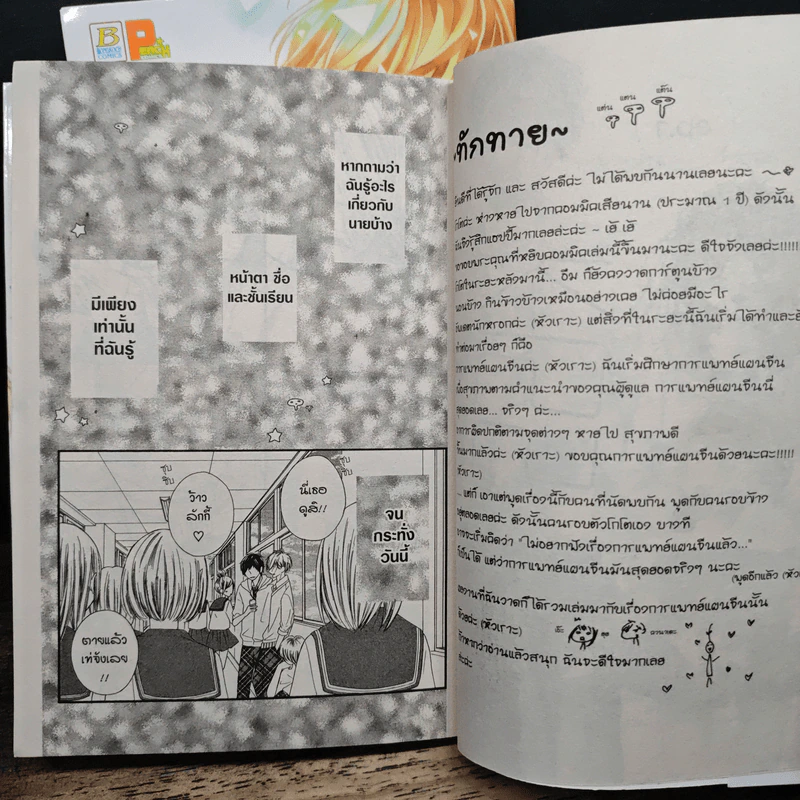 B
BONGKOCH COMICS
P
หากถามว่า
ฉันรู้อะไร
เกี่ยวกับ
นายบ้าง
หน้าตา ชื่อ
และชั้นเรียน
มีเพียง
เท่านั้น
ที่ฉันรู้
จน
กระทั่ง
วันนี้
ซุบ
ซิบ
นี่เธอ
ดูสิ!!
ซุบ
ซิบ
ว้าว
ลักกี้
♡
ตายแล้ว
เท่จังเลย
!!
แต่น แตน แต๊น
ทักทาย~
ยินดีที่ได้รู้จัก และ สวัสดีค่ะ ไม่ได้พบกันนานเลยนะคะ ~
ห่างหายไปจากคอมมิคเสียนาน (ประมาณ 1 ปี) ดังนั้น
ฉันจึงรู้สึกแฮปปี้มากเลยล่ะค่ะ ~ เฮ้ เฮ้
ขอขอบพระคุณที่หยิบคอมมิคเล่มนี้ขึ้นมานะคะ ดีใจจังเลยค่ะ!!!!!
ในระยะหลังมานี้... อืม ก็ยังคงวาดการ์ตูนบ้าง
นอนบ้าง กินข้าวบ้างเหมือนอย่างเคย ไม่ค่อยมีอะไร
นักหรอกค่ะ (หัวเราะ) แต่สิ่งที่ในระยะนี้ฉันเริ่มได้ทำและ
ทำต่อมาเรื่อยๆ ก็คือ
การแพทย์แผนจีนค่ะ (หัวเราะ) ฉันเริ่มศึกษาการแพทย์แผนจีน
เพื่อสุขภาพตามคำแนะนำของคุณผู้ดูแล การแพทย์แผนจีนนี่
สุดยอดเลย... จริงๆ ค่ะ...
อาการผิดปกติตามจุดต่างๆ หายไป สุขภาพดี
ขึ้นมากแล้วค่ะ (หัวเราะ) ขอบคุณการแพทย์แผนจีนด้วยนะคะ!!!!!
(หัวเราะ)
... แต่ก็ เอาแต่พูดเรื่องนี้กับคนที่นัดพบกัน พูดกับคนรอบข้าง
ตลอดเลยค่ะ ดังนั้นคนรอบตัวโกโตเอง บางที
อาจจะเริ่มคิดว่า "ไม่อยากฟังเรื่องการแพทย์แผนจีนแล้ว..."
ก็เป็นได้ แต่ว่าการแพทย์แผนจีนมันสุดยอดจริงๆ นะคะ
(พูดอีกแล้ว (หัว
ผลงานที่ฉันวาดก็ได้รวมเล่มมากับเรื่องการแพทย์แผนจีนนั้น
ด้วยค่ะ (หัวเราะ)
ถ้าหากว่าอ่านแล้วสนุก ฉันจะดีใจมากเลย
ล่ะค่ะ